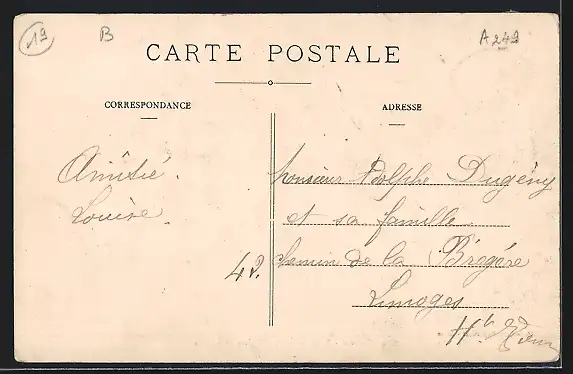 19
B
A 249
CARTE POSTALE
CORRESPONDANCE
ADRESSE
Amitié.
Louise.
Monsieur Adolphe Dugény
et sa famille
42. Chemin de la Brégère
Limoges
Hte Vienne